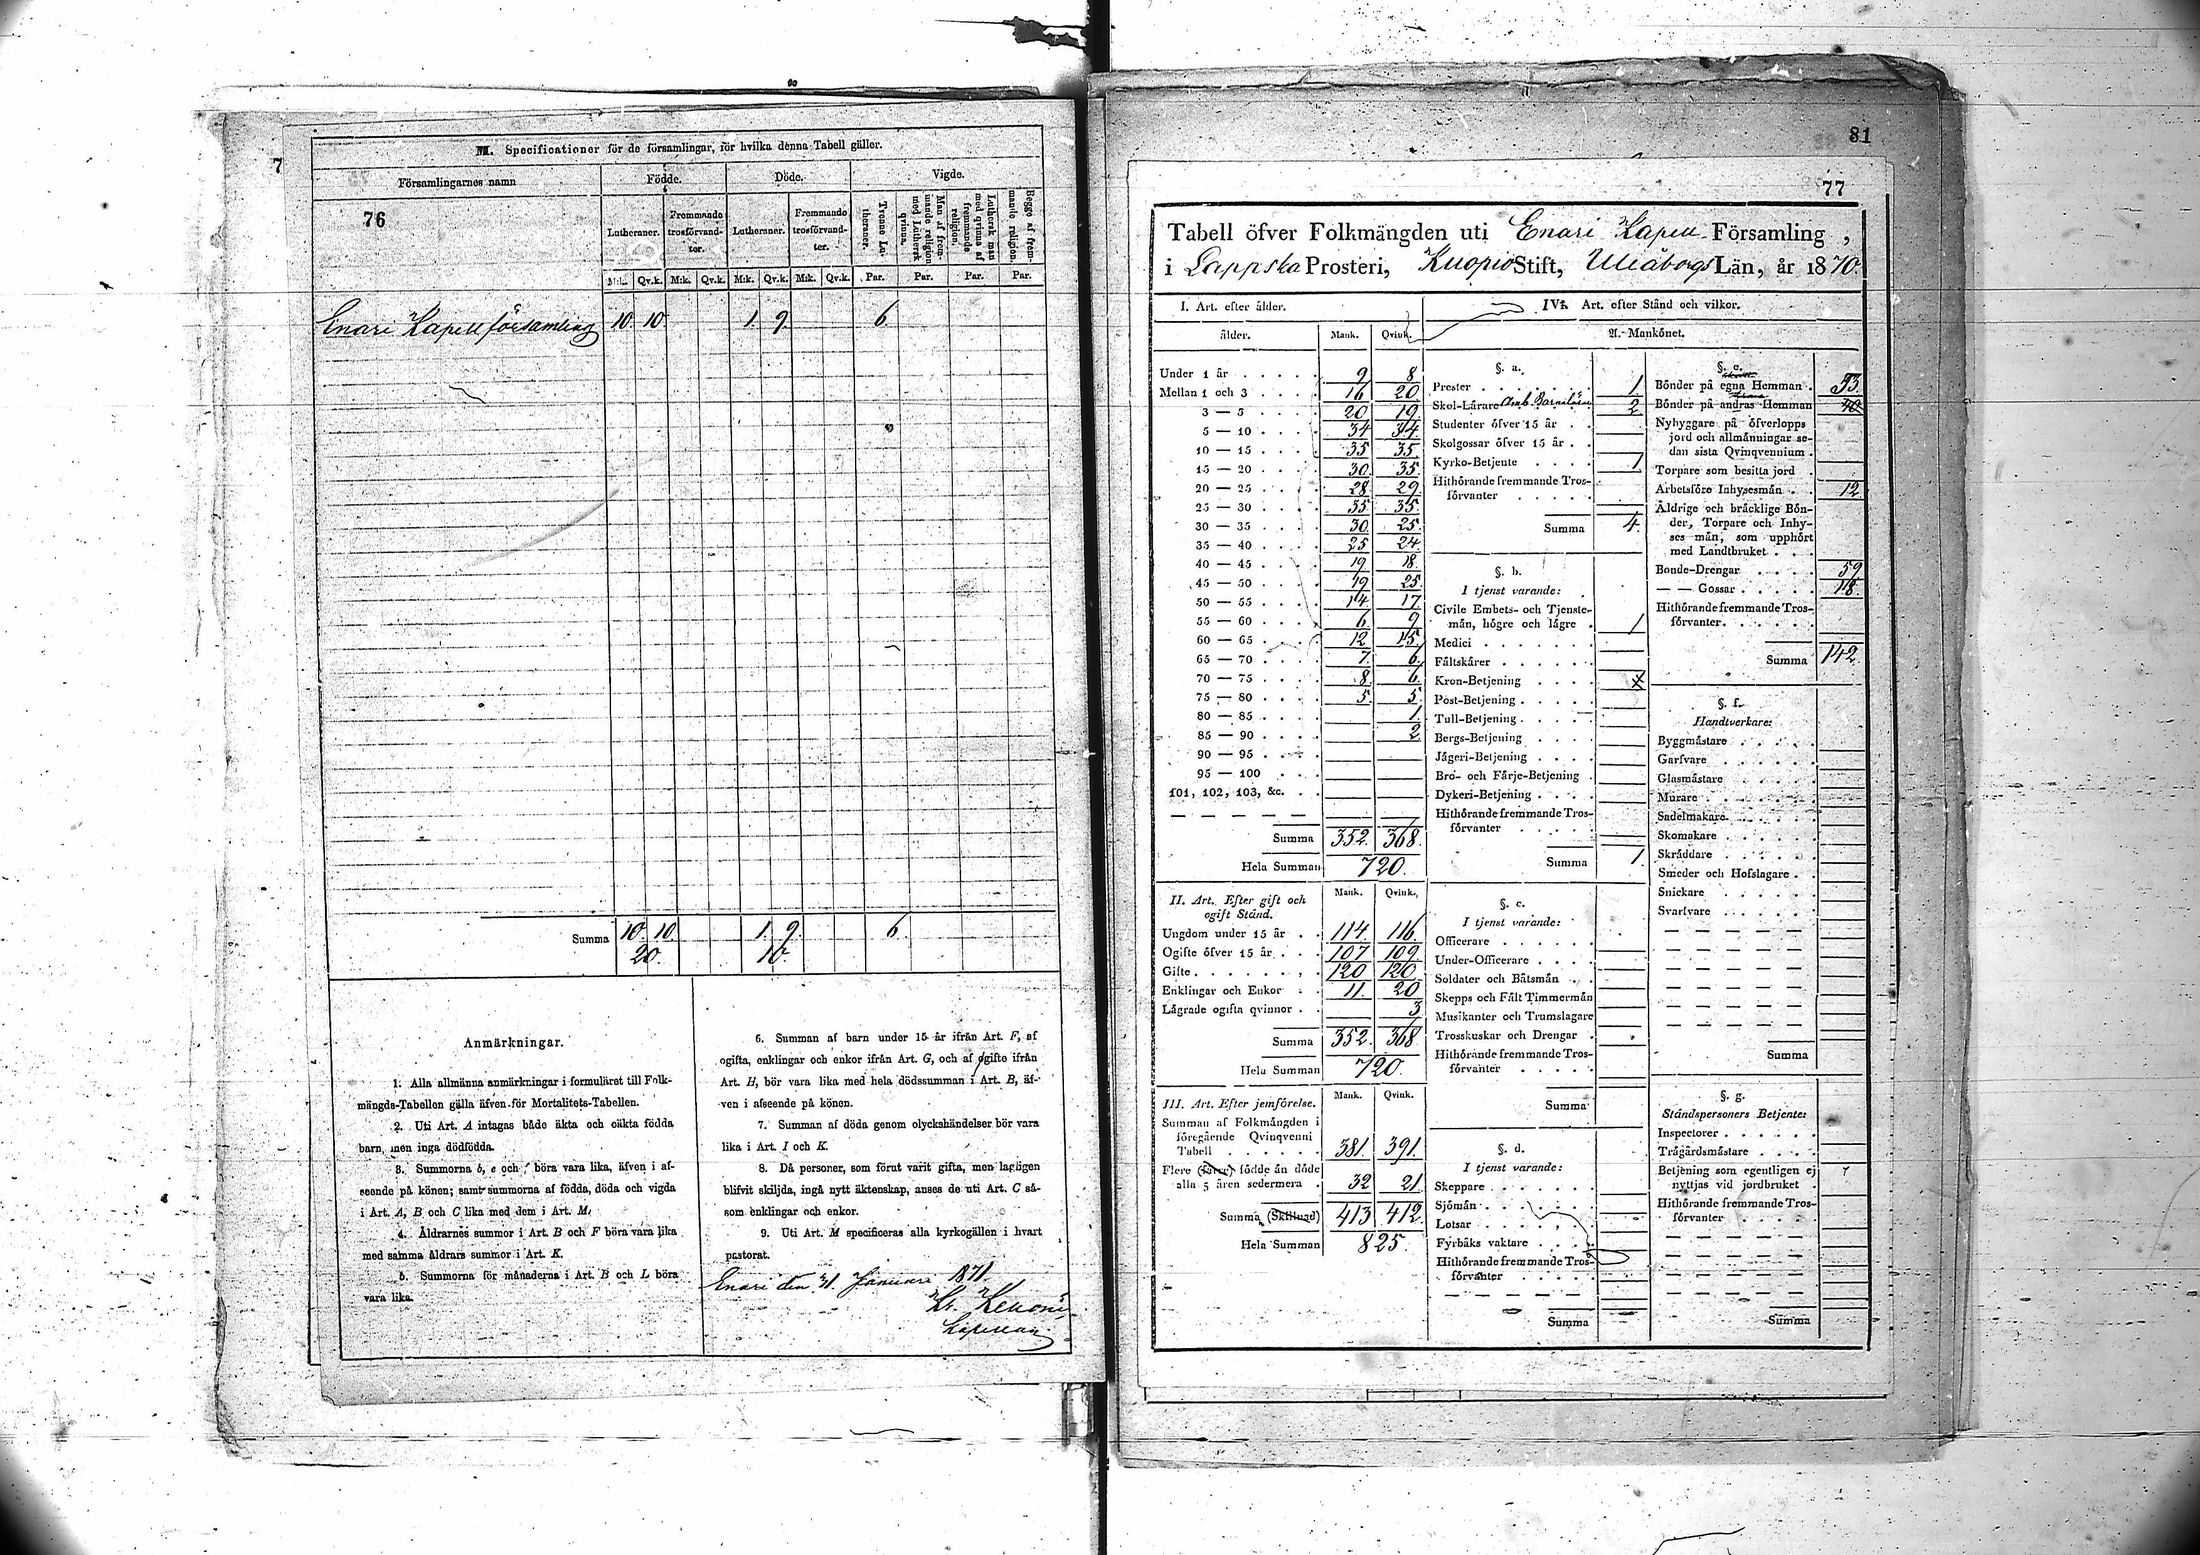 7
M. Specificationer för de församlingar, för hvilka denna Tabell gäller.
Församlingarnes namn
Födde.
Döde.
Vigde.
76
Lutheraner.
Fremmande trosförvandter.
Lutheraner.
Fremmande trosförvandter.
Trenne Lutheraner.
Man af fremmande religion med Luthersk qvinna.
Luthersk man med qvinna af fremmande religion.
Begge af fremmande religion.
M:k. Qv.k. M:k. Qv.k. M:k. Qv.k. M:k. Qv.k. Par. Par. Par. Par.
Enari Kapellförsamling 10. 10. 1. 9. 6.
Summa 10. 10. 1. 9. 6.
20. 10.
Anmärkningar.
1. Alla allmänna anmärkningar i formuläret till Folk-
mängds-Tabellen gälla äfven för Mortalitets-Tabellen.
2. Uti Art. A intagas både äkta och oäkta födda
barn, men inga dödfödda.
3. Summorna b, e och f böra vara lika, äfven i af-
seende på könen; samt summorna af födda, döda och vigda
i Art. A, B och C lika med dem i Art. M.
4. Åldrarnes summor i Art. B och F böra vara lika
med samma åldrars summor i Art. K.
5. Summorna för månaderna i Art. B och L böra
vara lika.
6. Summan af barn under 15 år ifrån Art. F, af
ogifta, enklingar och enkor ifrån Art. G, och af gifte ifrån
Art. H, bör vara lika med hela dödssumman i Art. B, äf-
ven i afseende på könen.
7. Summan af döda genom olyckshändelser bör vara
lika i Art. I och K.
8. Då personer, som förut varit gifta, men lagligen
blifvit skiljda, ingå nytt äktenskap, anses de uti Art. C så-
som enklingar och enkor.
9. Uti Art. M specificeras alla kyrkogällen i hvart
pastorat.
Enari den 31. Januari 1871.
Kapellan
81
77
Tabell öfver Folkmängden uti Enari Kapell Församling,
i Lappska Prosteri, Kuopio Stift, Uleåborgs Län, år 1870.
I. Art. efter ålder.
ålder. Mank. Qvink.
Under 1 år 9 8
Mellan 1 och 3 16 20
3 — 5 20 19
5 — 10 34 34
10 — 15 35 35
15 — 20 30 35
20 — 25 28 29
25 — 30 35 35
30 — 35 30 25
35 — 40 25 24
40 — 45 19 18
45 — 50 19 25
50 — 55 14 17
55 — 60 6 9
60 — 65 12 15
65 — 70 7 6
70 — 75 8 6
75 — 80 5 5
80 — 85 1
85 — 90 2
90 — 95
95 — 100
101, 102, 103, &c.
Summa 352. 368.
Hela Summan 720.
II. Art. Efter gift och ogift Stånd. Mank. Qvink.
Ungdom under 15 år 114 116
Ogifte öfver 15 år 107 109
Gifte 120 120
Enklingar och Enkor 11 20
Lågrade ogifta qvinnor 3
Summa 352. 368
Hela Summan 720.
III. Art. Efter jemförelse. Mank. Qvink.
Summan af Folkmängden i
föregående Qvinqvenni
Tabell 381. 391.
Flere (färre) födde än döde
alla 5 åren sedermera 32 21
Summa (Skillnad) 413 412.
Hela Summan 825.
IV. Art. efter Stånd och vilkor.
A. Mankönet.
§. a.
Prester 1
Skol-Lärare Amb. Barnalärare 2
Studenter öfver 15 år
Skolgossar öfver 15 år
Kyrko-Betjente 1
Hithörande fremmande Tros-
förvanter
Summa 4.
§. b.
I tjenst varande:
Civile Embets- och Tjenste-
män, högre och lägre 1
Medici
Fältskärer
Kron-Betjening
Post-Betjening
Tull-Betjening
Bergs-Betjening
Jägeri-Betjening
Bro- och Färje-Betjening
Dykeri-Betjening
Hithörande fremmande Tros-
förvanter
Summa 1.
§. c.
I tjenst varande:
Officerare
Under-Officerare
Soldater och Båtsmän
Skepps och Fält Timmermän
Musikanter och Trumslagare
Trosskuskar och Drengar
Hithörande fremmande Tros-
förvanter
Summa
§. d.
I tjenst varande:
Skeppare
Sjömän
Lotsar
Fyrbåks vaktare
Hithörande fremmande Tros-
förvanter
Summa
§. e.
Bönder på egna Hemman 53.
Bönder på andras Hemman 40
Nybyggare på öfverlopps
jord och allmänningar se-
dan sista Qvinqvennium
Torpare som besitta jord
Arbetsföre Inhysesmän 12
Äldrige och bräcklige Bön-
der, Torpare och Inhy-
ses män, som upphört
med Landtbruket
Bonde-Drengar 59
— — Gossar 18
Hithörande fremmande Tros-
förvanter
Summa 142.
§. f.
Handtverkare:
Byggmästare
Garfvare
Glasmästare
Murare
Sadelmakare
Skomakare
Skräddare
Smeder och Hofslagare
Snickare
Svarfvare
Summa
§. g.
Ståndspersoners Betjente:
Inspectorer
Trägårdsmästare
Betjening som egentligen ej
nyttjas vid jordbruket
Hithörande fremmande Tros-
förvanter
Summa